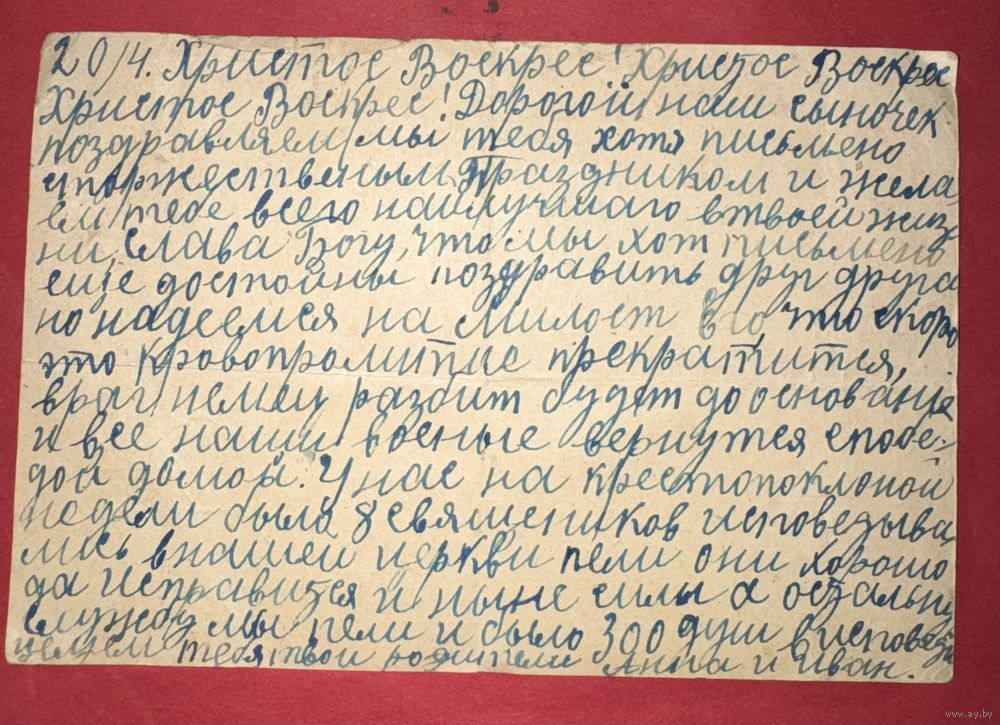 20/4. Христос Воскрес! Христос Воскрес
Христос Воскрес! Дорогой наш сыночек
поздравляем мы тебя хотя письмено
с торжествиным Праздником и жела
ем тебе всего наилучшаго в твоей жиз
ни, Слава Богу, что мы хот письмено
еще достойны поздравить друг друга
но надеемся на Милост Его, что скоро
это кровопромитие прекратится,
враг немец разбит будет до основание
и все наши военые вернутся с побе-
дой домой. У нас на крестопоклоной
недели было 8 священиков исповедыва
лись в нашей церкви пели они хорошо
да исправится и ныне силы а остальну
службу мы пели и было 300 душ в исповеди
целуем тебя твои родители Анна и Иван.
www.ay.by